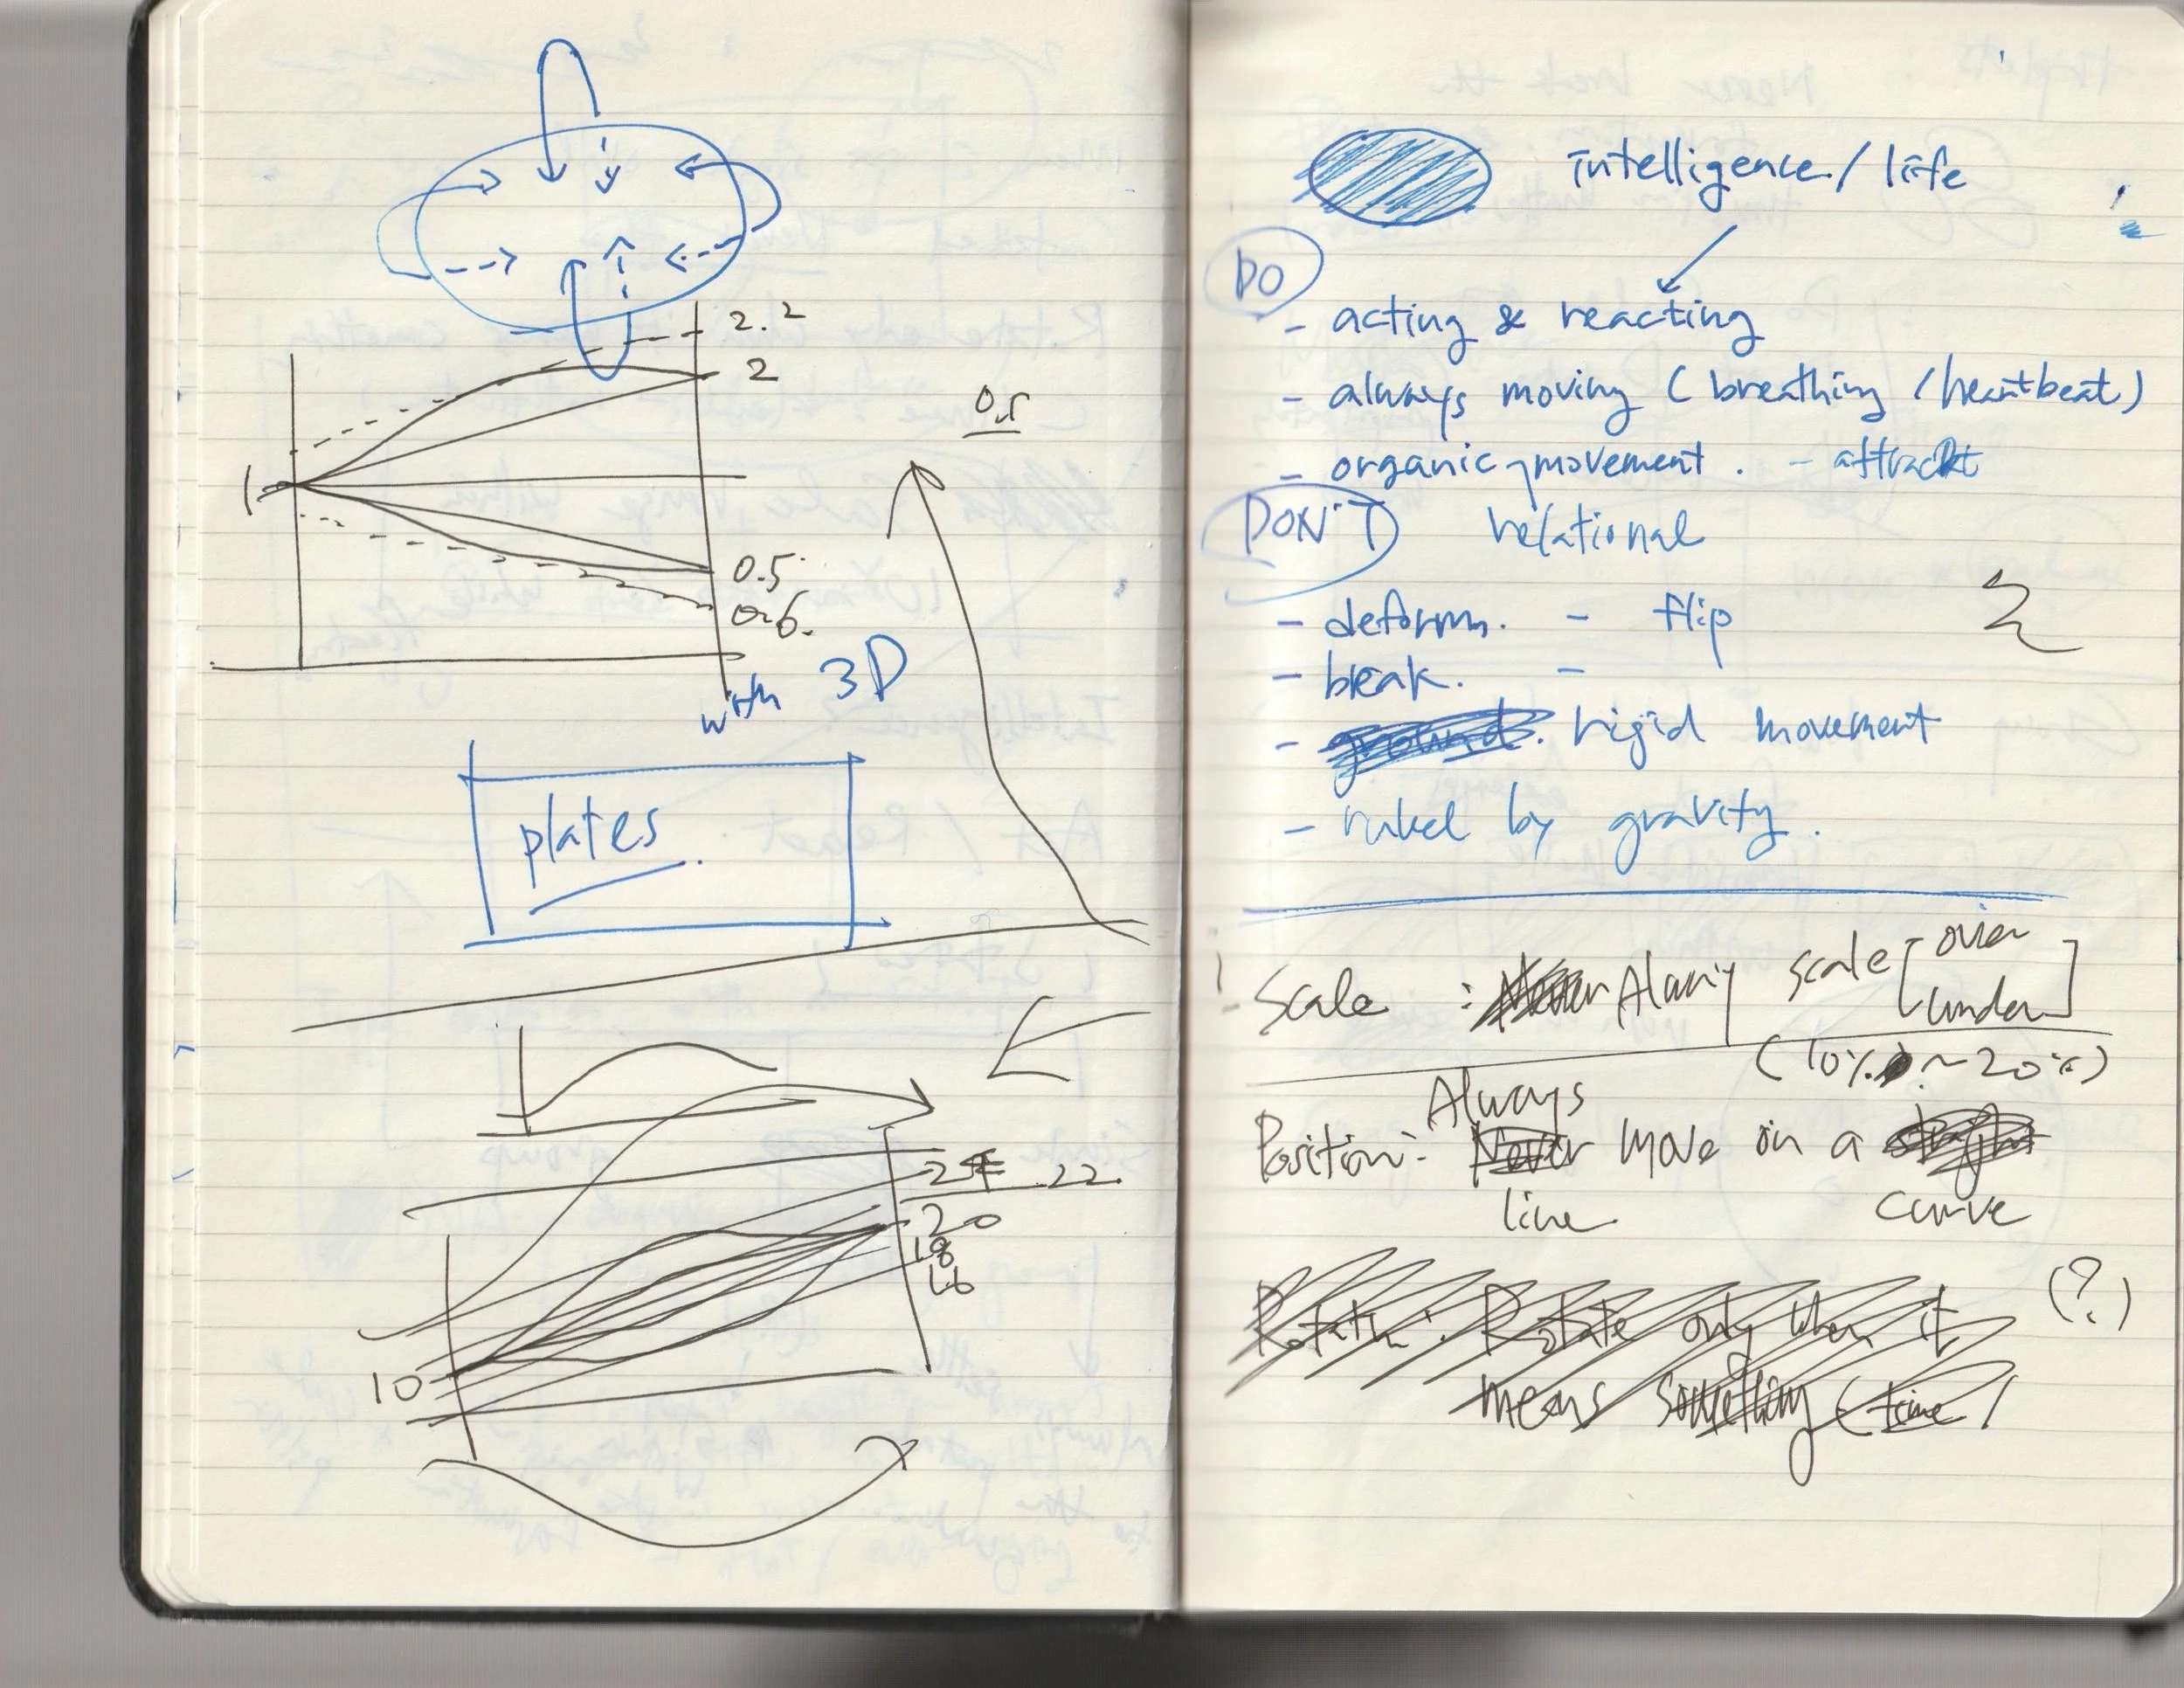 2.2
2
1
0.5
0.5
0.6.
with 3D
plates.
24 22.
20
18
16
10
intelligence / life
DO
- acting & reacting
- always moving (breathing / heartbeat)
- organic movement. - attract
DON'T relational
- deform. - flip
- break. -
- ground. rigid movement
- ruled by gravity.
Scale : Never Alway scale [over
under]
(10% ~ 20%)
Always
Position: Never move on a straight
line curve
Rotatin : Rotate only when it (?)
means something (time)